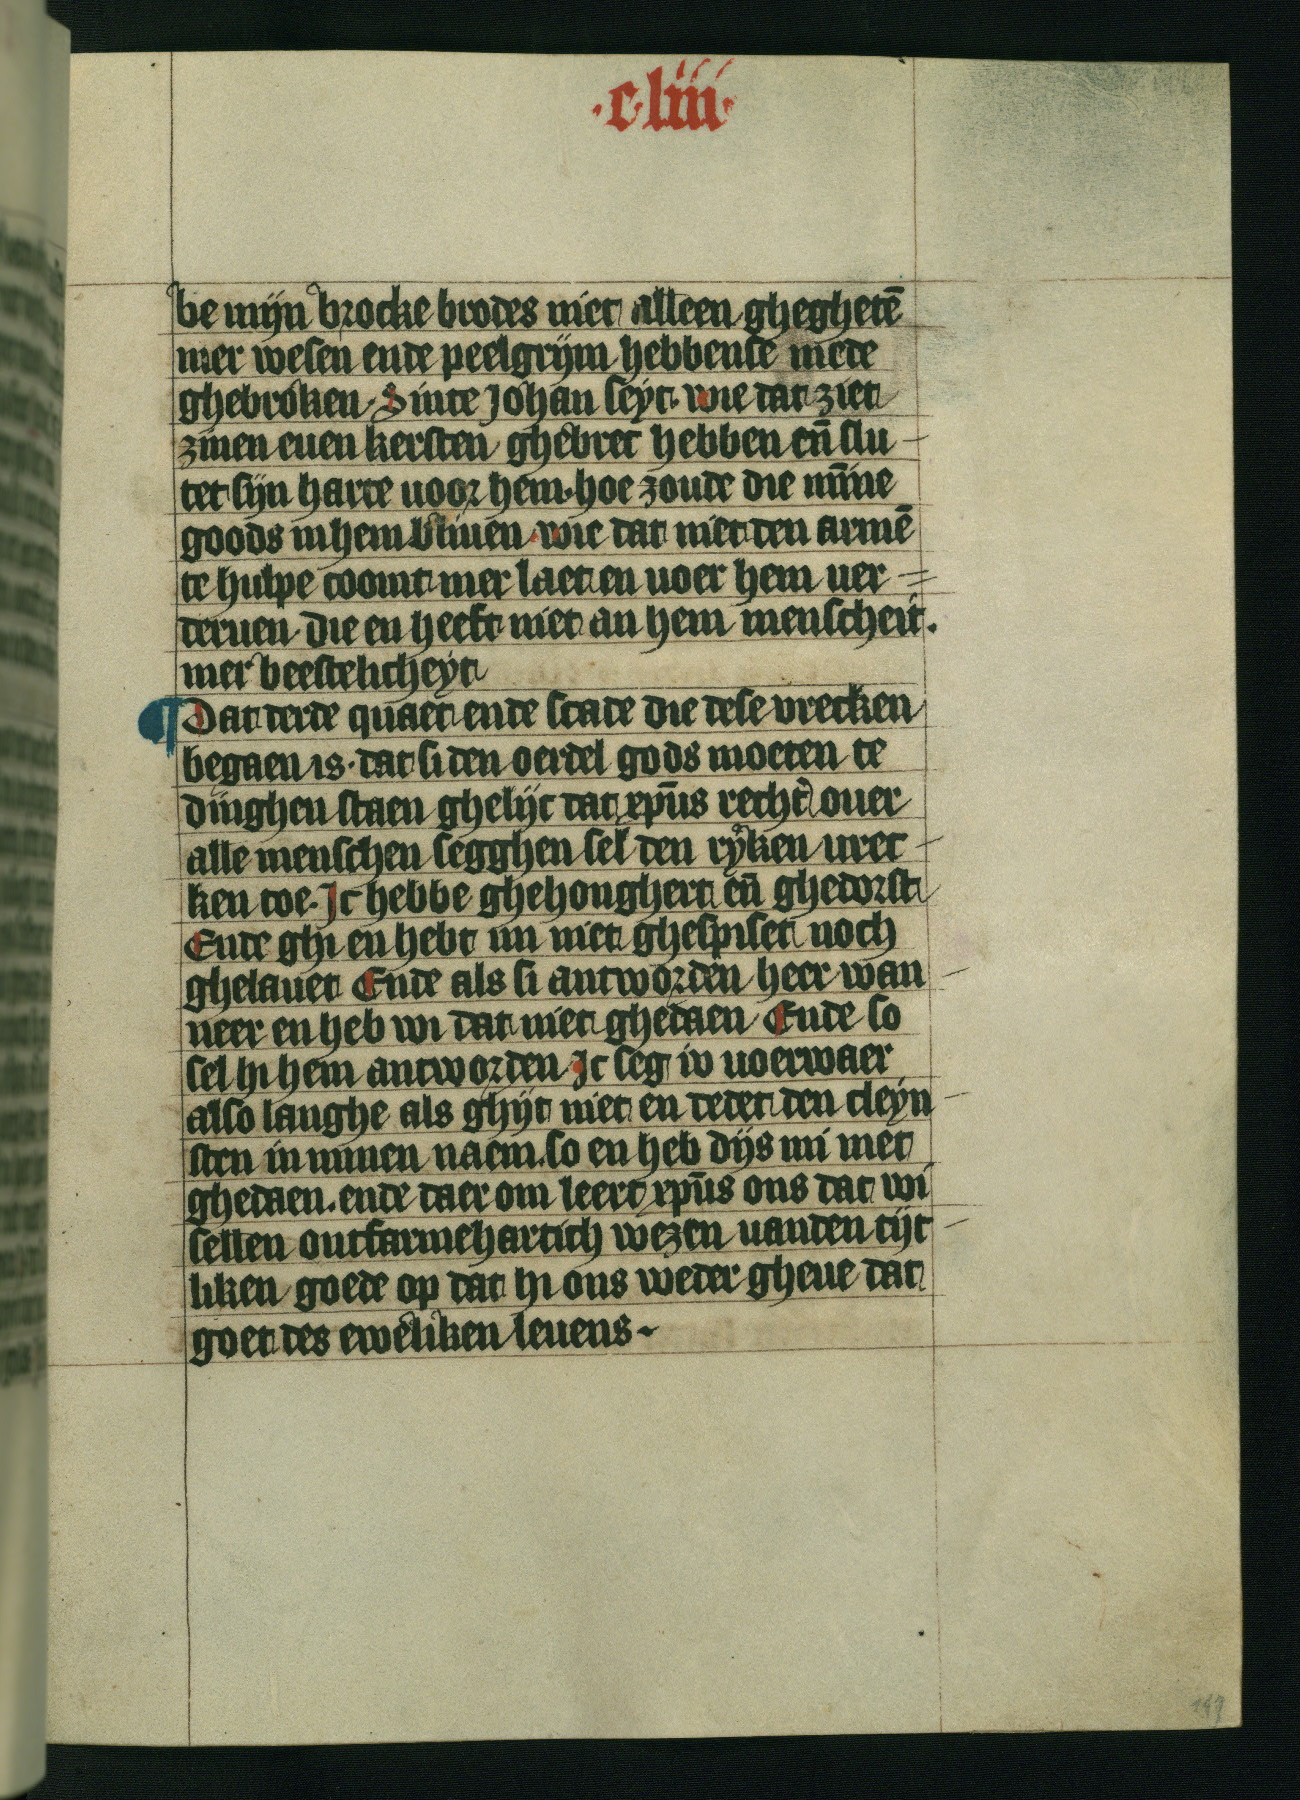 ·c·liii·
be mijn brocke brodes niet alleen gheghetē
mer wesen ende peelgrijm hebbense mede
ghebroken. Sinte Johan seyt. wie dat ziet
zinen euen kersten ghebrec hebben eñ slu
tet sijn harte uoor hem. hoe zoude die mīne
goods in hem bliuen. wie dat niet den armē
te hulpe coomt mer laet en uoer hem uer
deruen. die en heeft niet an hem menscheit.
mer beestelicheyt
¶ Dat derde quaet ende scade die dese vrecken
begaen is. dat si den oerdel gods moeten te
dinghen staen ghelijc dat xpūs recht ouer
alle menschen segghen sel den ryken urec
ken toe. Jc hebbe ghehonghert eñ ghedorst
Ende ghi en hebt mi niet ghespiset noch
ghelauet Ende als si antworden heer wan
neer en heb wi dat niet ghedaen Ende so
sel hi hem antworden Jc seg iv uoerwaer
also langhe als ghijt niet en dedet den cleyn
sten in minen naem. so en heb dijs mi niet
ghedaen. ende daer om leert xpūs ons dat wi
sellen ontfarmehartich wezen uanden tijt
liken goede op dat hi ons weder gheue dat
goet des eweliken leuens